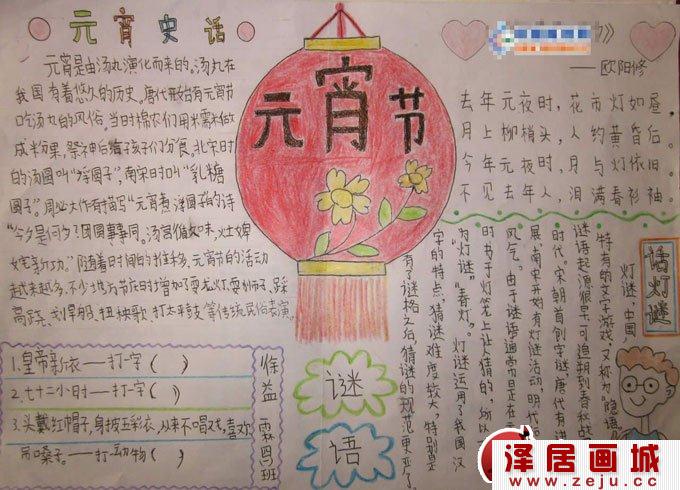 元宵史话
元宵是由汤丸演化而来的。汤丸在
我国有着悠久的历史。唐代开始有元宵节
吃汤丸的风俗。当时棉农们用米需米做
成半块果,祭神后
孩子们分食。北宋时
的汤圆叫“浮圆子”,南宋时叫“乳糖
圆子”。周必大作有描写“元宵煮浮圆子的诗
“今夕是何夕?团圆事事同。汤官
味,灶婢
新功。”随着时间的推移,元宵节的活动
越来越多,不少地方节庆时增加了耍龙灯、耍狮子、踩
高跷、划旱船、扭秧歌、打太平鼓等传统民俗表演。
元宵节
》
——欧阳修
去年元夜时,花市灯如昼。
月上柳梢头,人约黄昏后。
今年元夜时,月与灯依旧。
不见去年人,泪满春衫袖。
话灯谜
灯谜,中国
特有的文字游戏,又称为“隐语
谜语起源很早,可追朔到春秋战
时代。宋朝首创字谜,唐代有进
展,南宋开始有灯谜活动,明代
风气。由于谜语通常而是在元
时书于灯笼上让人猜的,所以
为“灯谜”“春灯”。灯谜运用了我国汉
字的特点,猜谜难度较大。特别是
有了谜格之后,猜谜的规范更严了
1.皇帝新衣——打一字( )
2.七十二小时——打一字( )
3.头戴红帽子,身披五彩衣,从来不唱戏,喜欢
吊嗓子。——打一动物( )
徐益霖
四班
谜
语
泽居画城
www.zeju.cc